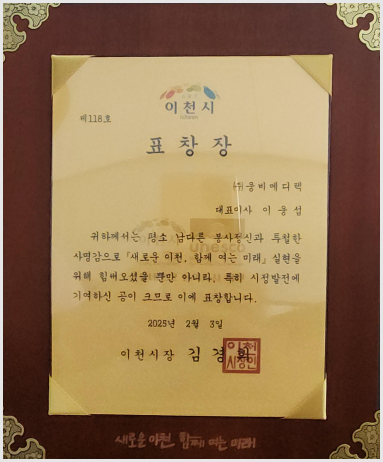 이천시
제118호
표창장
㈜웅비메디텍
대표이사 이웅섭
귀하께서는 평소 남다른 봉사정신과 투철한
사명감으로 「새로운 이천, 함께 여는 미래」 실현을
위해 힘써오셨을 뿐만 아니라, 특히 시정발전에
기여하신 공이 크므로 이에 표창합니다.
unesco
2025년 2월 3일
이천시장 김경희
이천
시장인
새로운 이천 함께 여는 미래